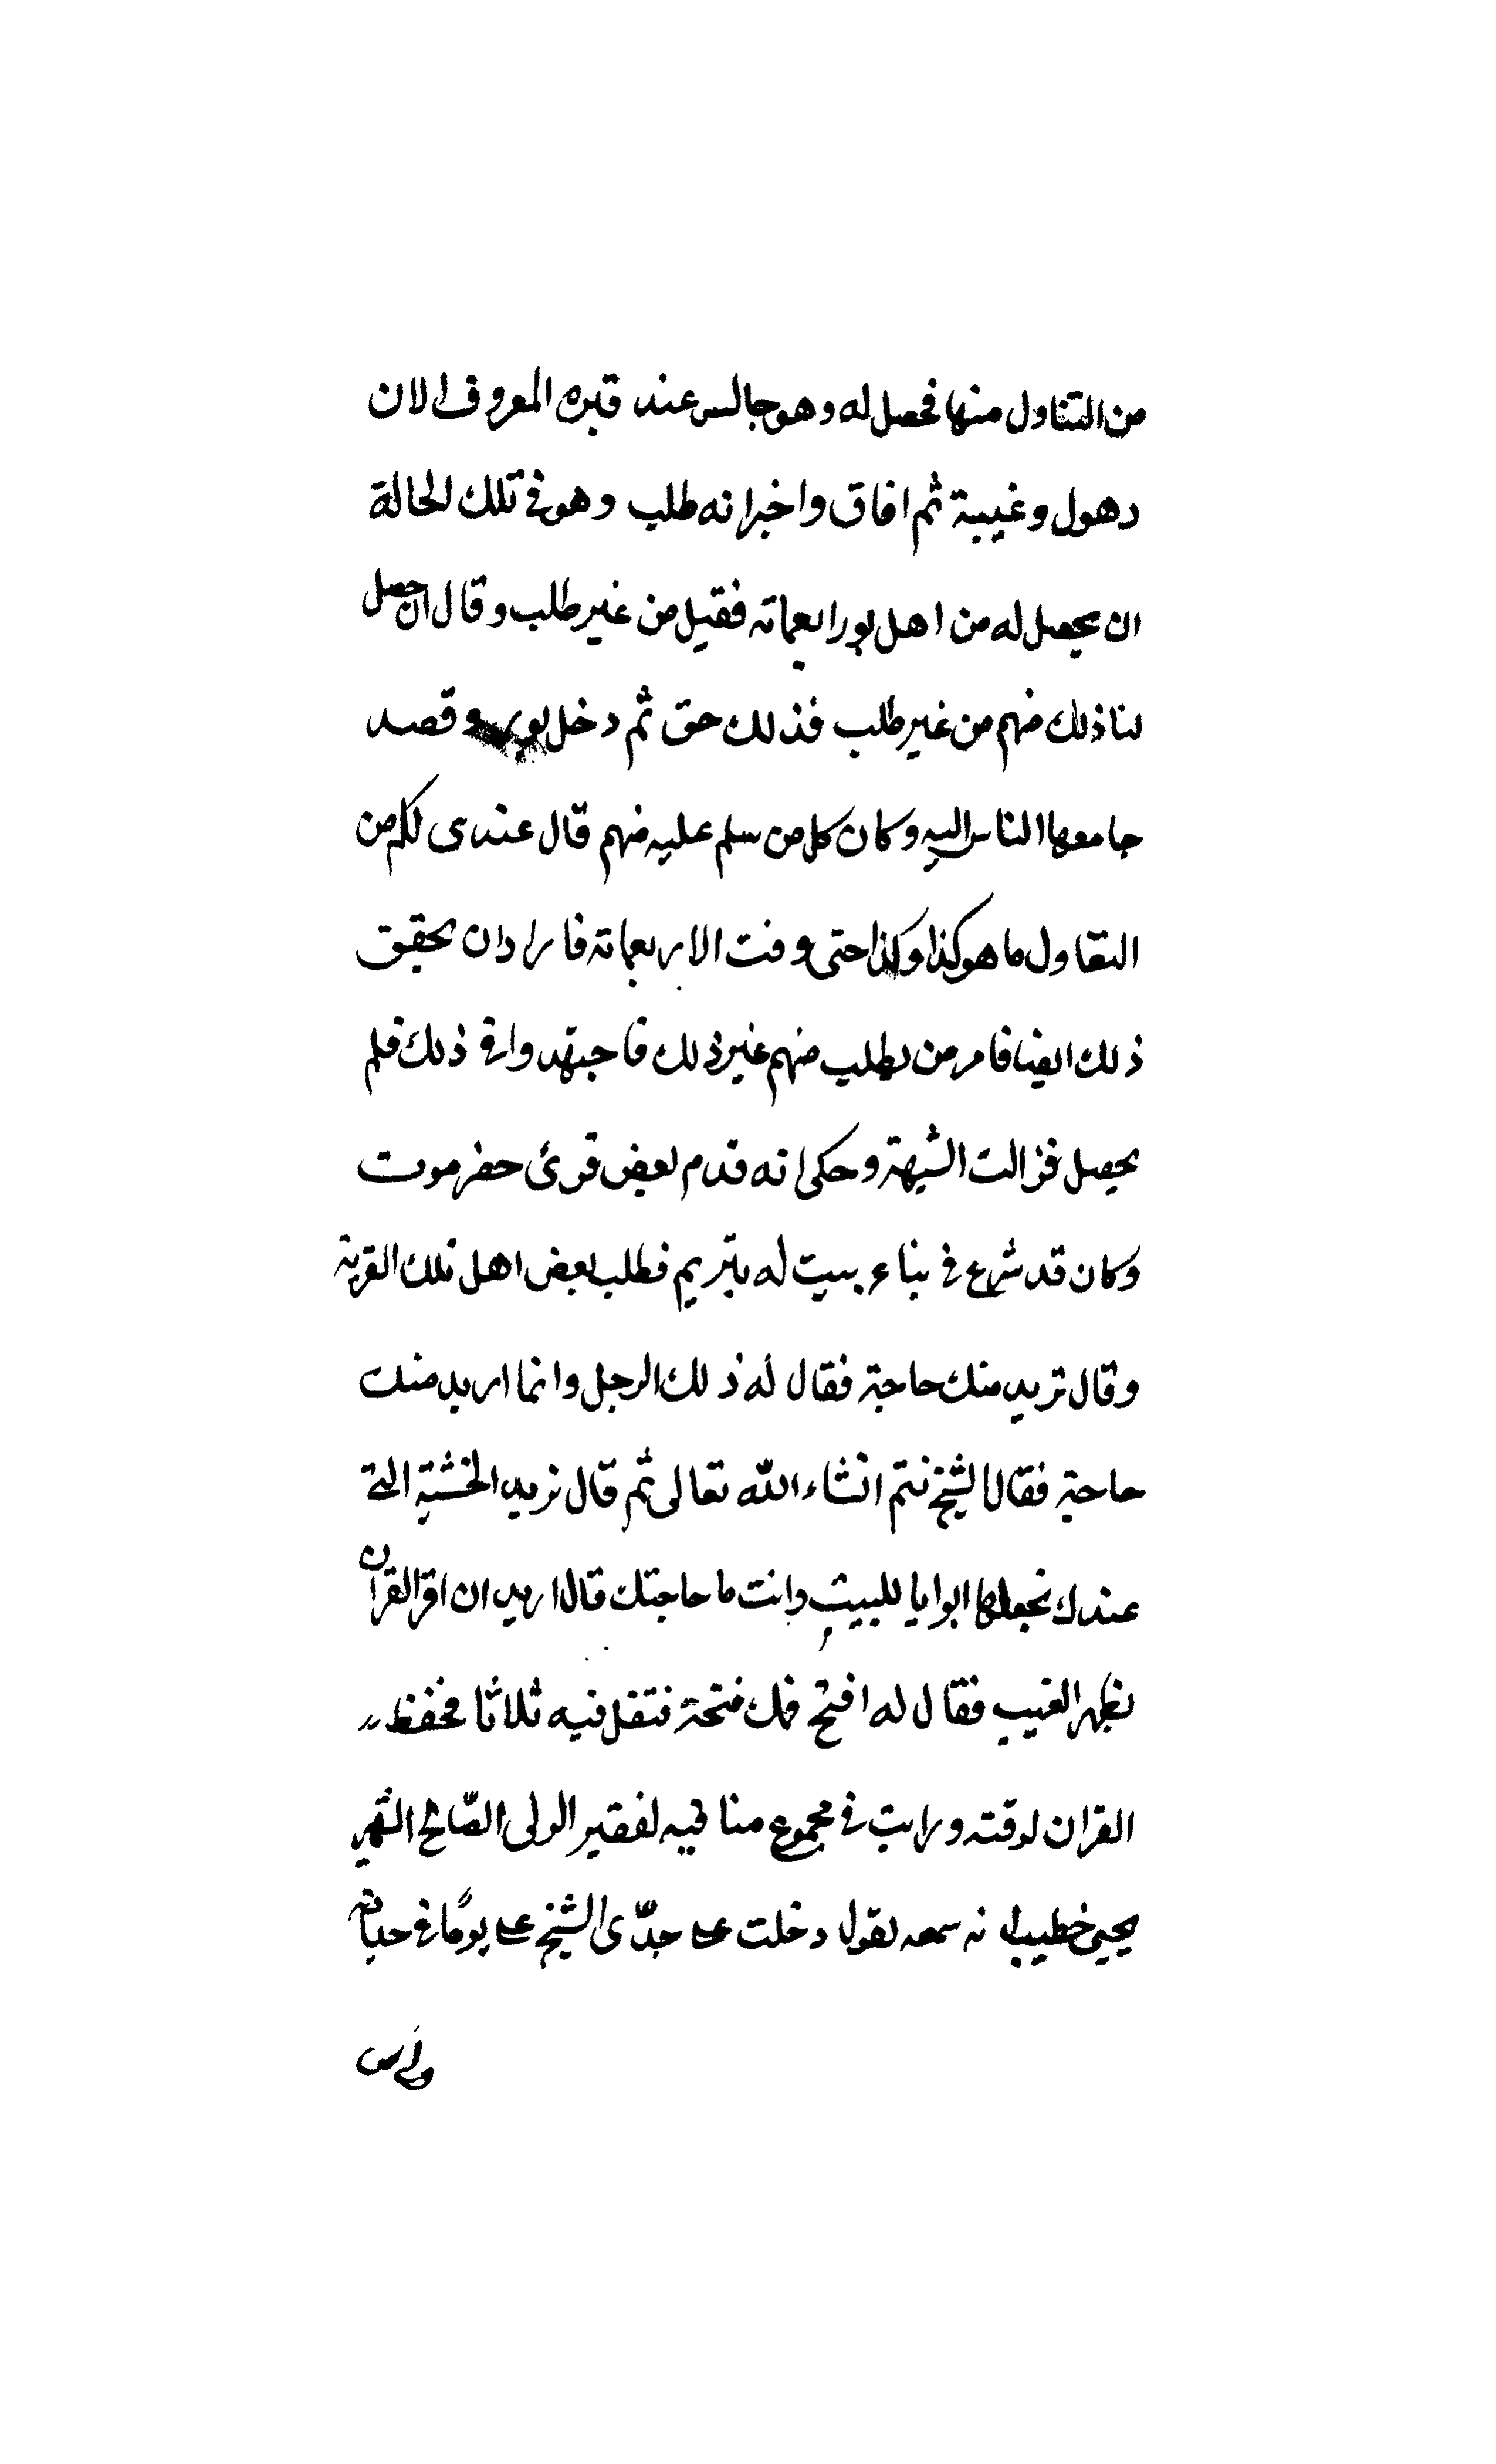 من التناول منها فحصل له وهو جالس عند قبره المعروف الان
دهول وغيبة ثم افاق واخبر انه طلب وهو في تلك الحالة
ان يحصل له من اهل بور اربعمائة فقيل من غير طلب وقال ان حصل
لنا ذلك منهم من غير طلب فذلك حق ثم دخل بور وقصد
جامعها الناس اليه وكان كل من سلم عليه منهم قال عندي لكم من
التقاول ما هو كذا وكذا حتى وفت الاربعمائة فاراد ان يحقق
ذلك ايضا فامر من يطلب منهم غير ذلك فاجتهدوا في ذلك فلم
يحصل فزالت الشبهة وحكي انه قدم بعض قرئ حضرموت
وكان قد شرع في بناء بيت له بتريم فطلب بعض اهل تلك القرية
وقال نريد منك حاجة فقال له ذلك الرجل وانا اريد منك
حاجة فقال الشيخ نتم انشاء الله تعالى ثم قال نريد الخشبة التي
عندك نجعلها ابوابا للبيت وانت ما حاجتك قال اريد ان اقرا القران
بظهر الغيب فقال له افتح فمك ففتحه فتفل فيه ثلاثا فحفظ
القران لوقته ورايت في مجموع مناقبه لفقير الولي الصّالح الشهير
يحيى خطيب انه سمعه يقول دخلت على جدّي الشيخ علي يومًا في حياته